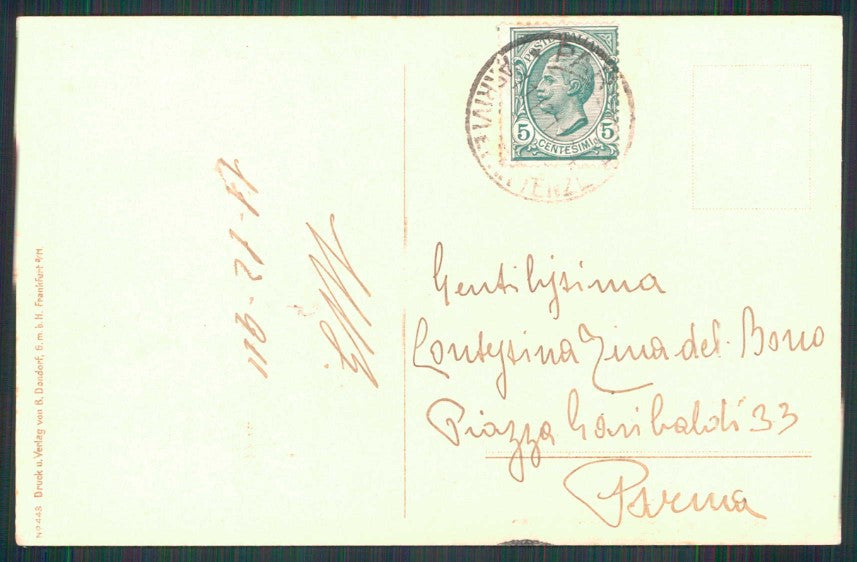 POSTE ITALIANE
5 5
CENTESIMI
Gentilissima
Contessina Zina del Bono
Piazza Garibaldi 33
Parma
No 448 Druck u. Verlag von B. Dondorf, G.m.b.H. Frankfurt a/M.